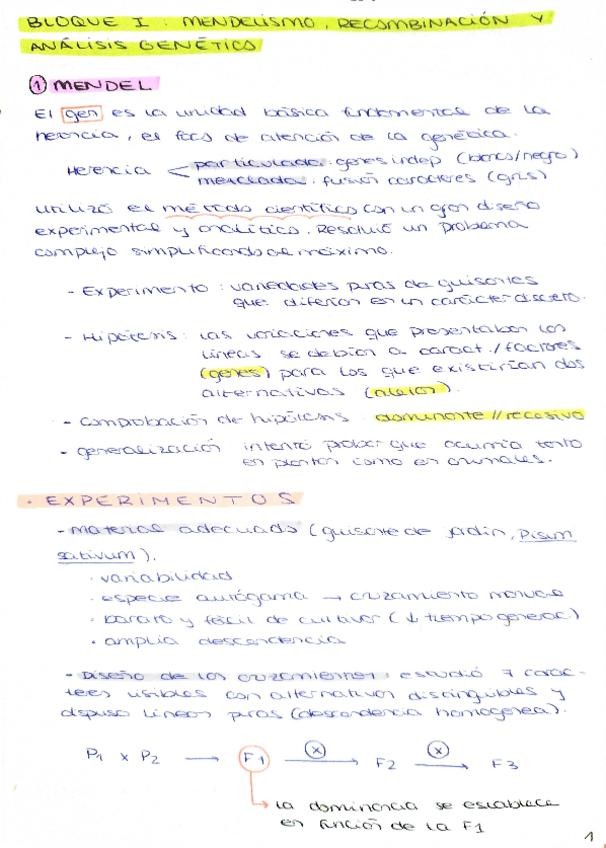 BLOQUE I : MENDELISMO, RECOMBINACIÓN Y
ANÁLISIS GENÉTICO
① MENDEL
El gen es la unidad básica fundamental de la
herencia, el foco de atención de la genética.
Herencia < particulada: genes indep (blanco/negro)
mezclada: fusión caracteres (gris)
Utilizó el método científico con un gran diseño
experimental y analítico. Resolvió un problema
complejo simplificando al máximo.
- Experimento : variedades puras de guisantes
que diferían en un carácter discreto.
- Hipótesis : las variaciones que presentaban las
líneas se debían a caract./factores
(genes) para los que existirían dos
alternativas (alelos).
- comprobación de hipótesis dominante // recesivo
- generalización intentó probar que ocurría tanto
en plantas como en animales.
· EXPERIMENTOS
- material adecuado (guisante de jardín, Pisum
sativum).
· variabilidad
· especie autógama → cruzamiento manual
· barato y fácil de cultivar (↓ tiempo generac.)
· amplia descendencia
- Diseño de los cruzamientos: estudió 7 carac-
teres visibles con alternativas distinguibles y
dispuso líneas puras (descendencia homogénea).
P1 x P2 → F1 —(x)→ F2 —(x)→ F3
la dominancia se establece
en función de la F1
1